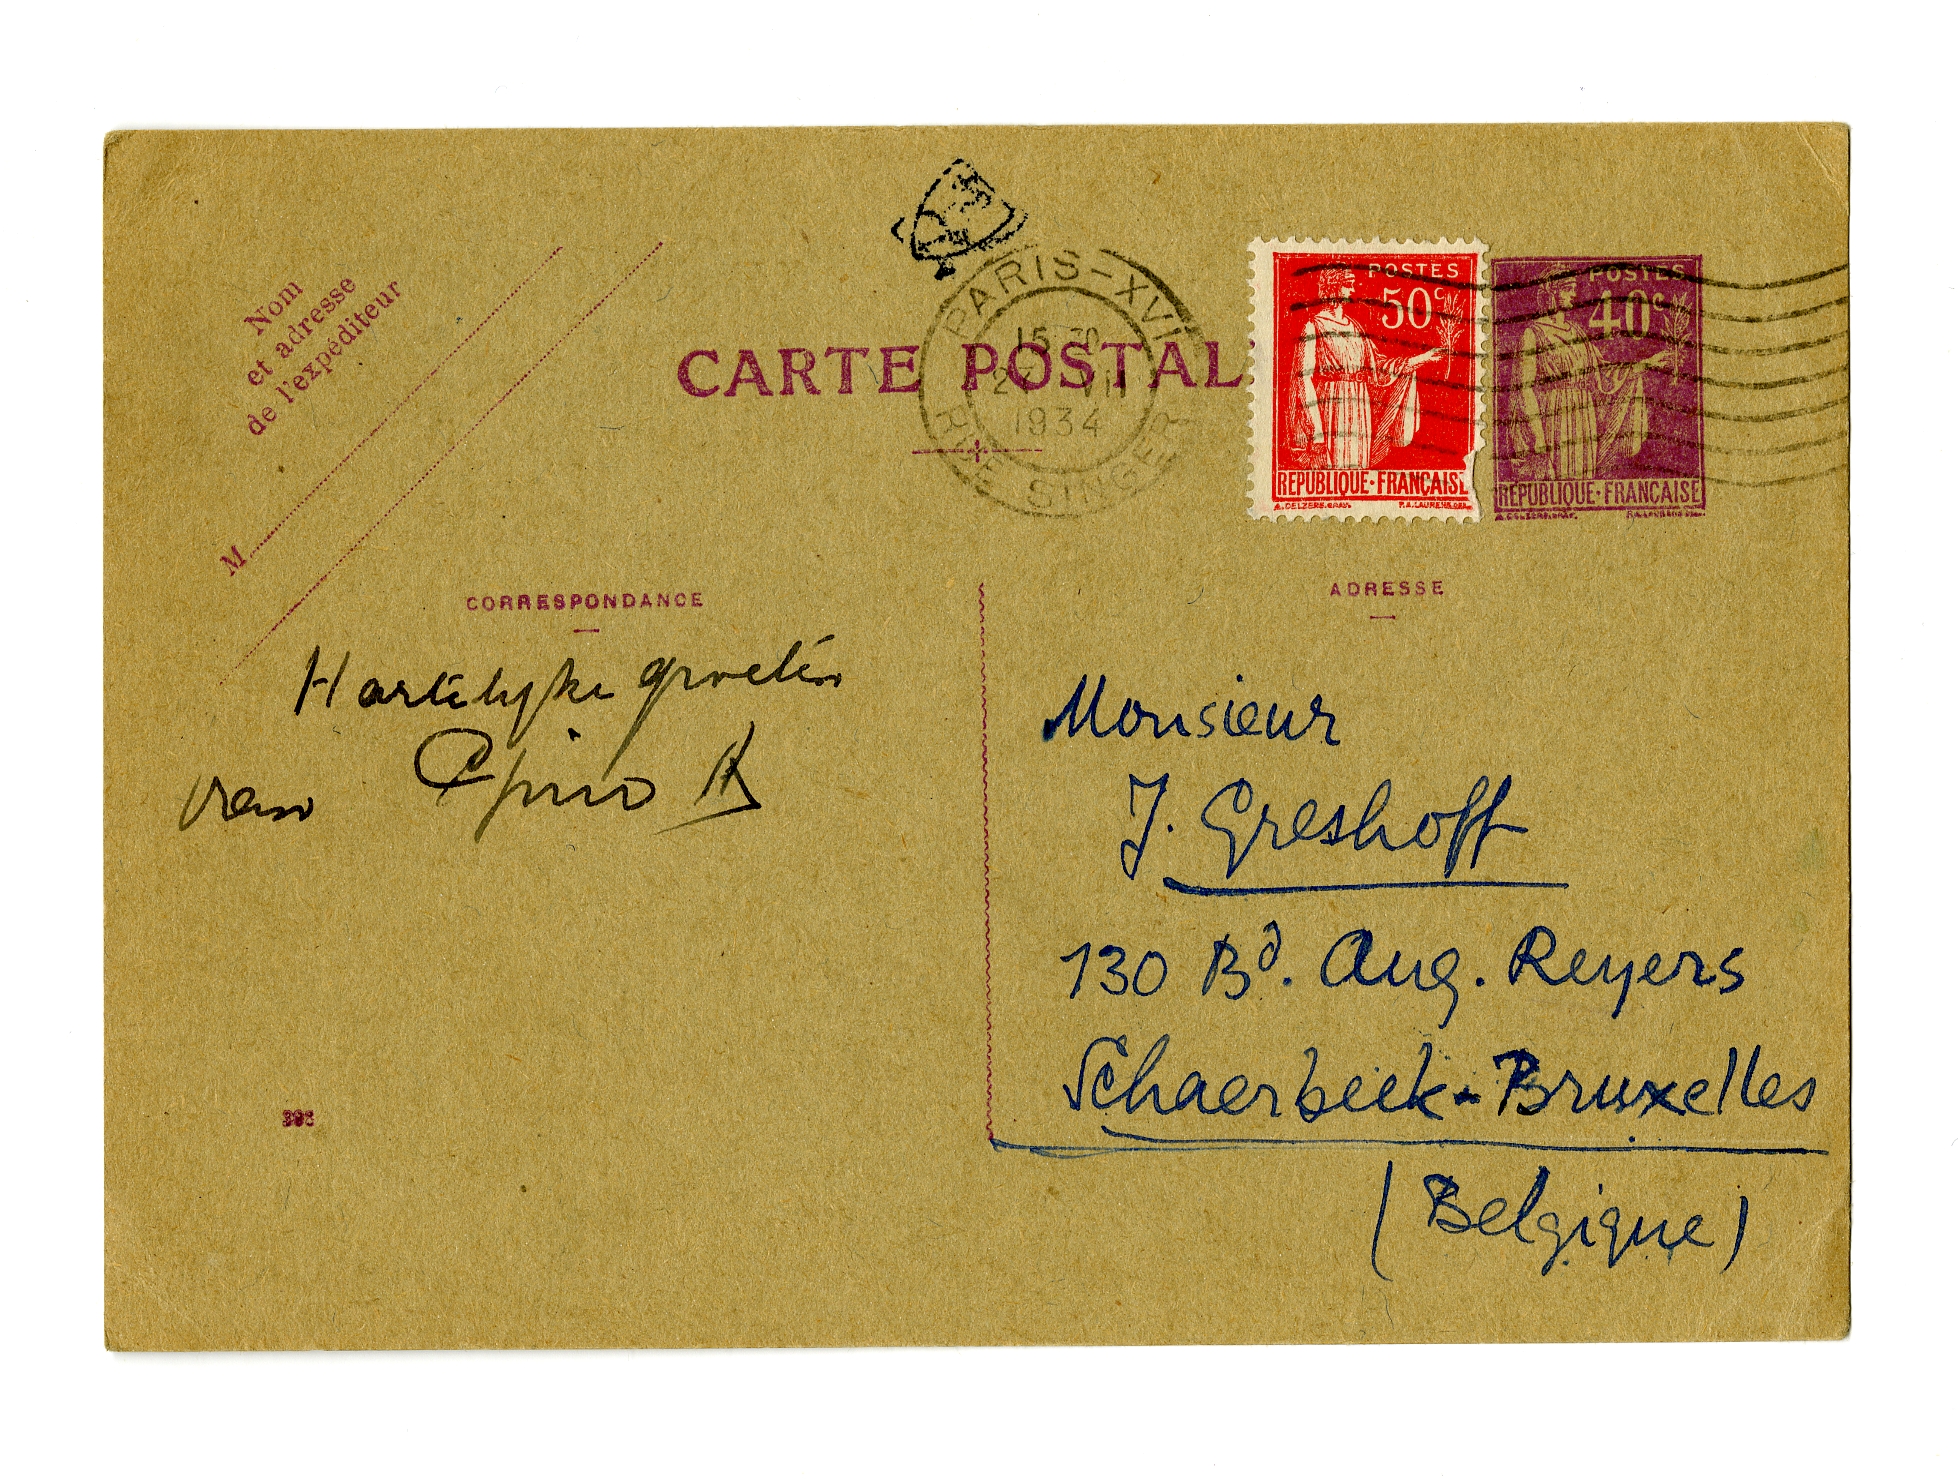 Nom
et adresse
de l'expéditeur
M
CARTE POSTAL
PARIS-XVI
15 30
1934
RUE SINGER
POSTES
50c
REPUBLIQUE·FRANÇAISE
POSTES
40c
REPUBLIQUE·FRANCAISE
CORRESPONDANCE
Hartelijke groeten
van
ADRESSE
Monsieur
J. Greshoff
130 Bd. Aug. Reyers
Schaerbeek-Bruxelles
(Belgique)